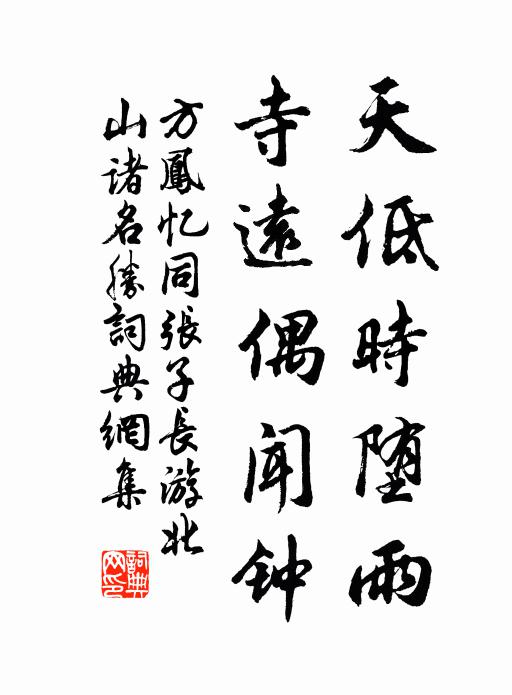 天低時堕雨
寺遠偶闻钟
方鳳忆同張子長游北
山诸名勝詞典網集
詞典
网印